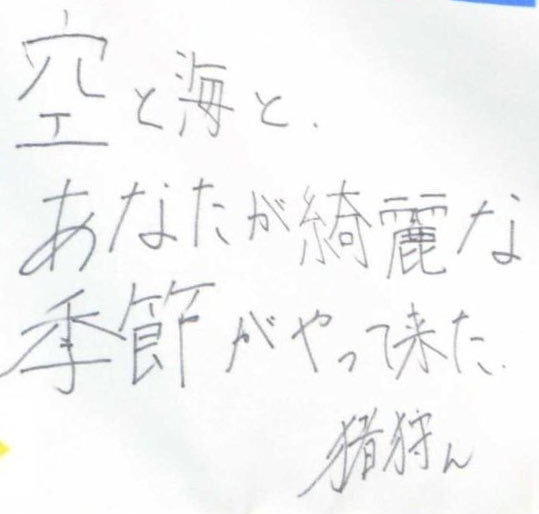 空と海と、
あなたが綺麗な
季節がやって来た.
猪狩ん